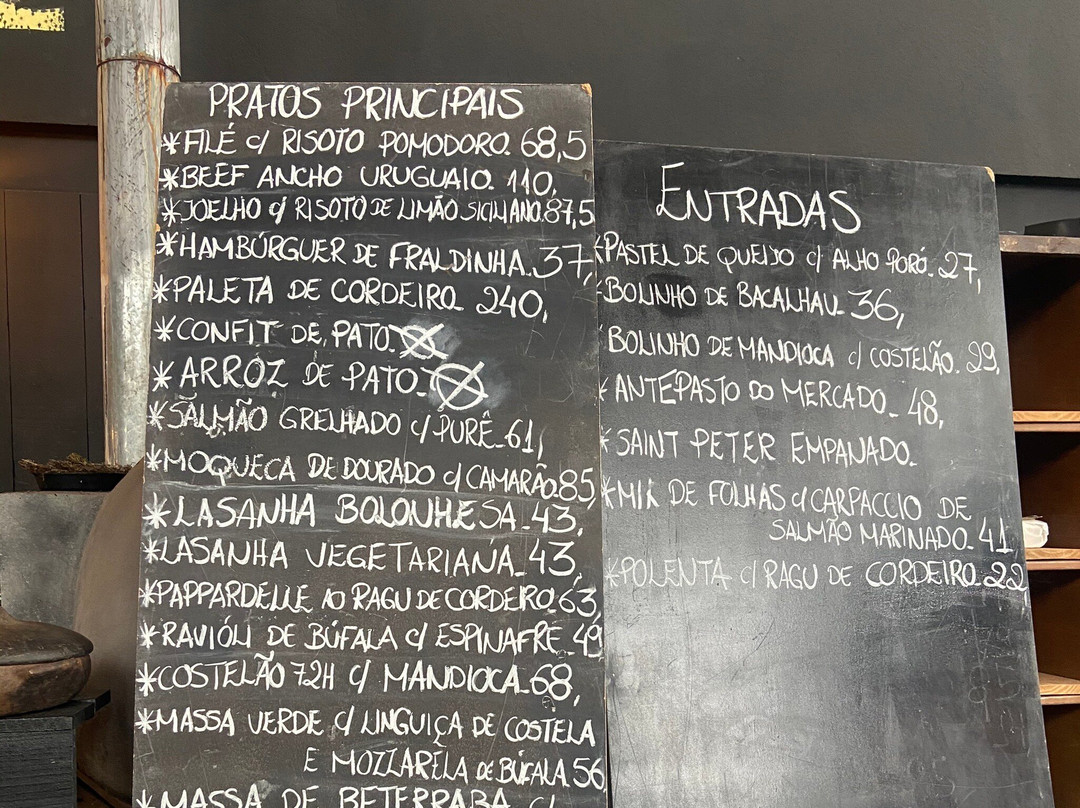 PRATOS PRINCIPAIS
*FILÉ c/ RISOTO POMODORO. 68,5
*BEEF ANCHO URUGUAIO. 110,
*JOELHO c/ RISOTO DE LIMÃO SICILIANO. 87,5
*HAMBÚRGUER DE FRALDINHA. 37,
*PALETA DE CORDEIRO_ 240,
*CONFIT DE PATO.
*ARROZ DE PATO.
*SALMÃO GRELHADO c/ PURÊ_ 61,
*MOQUECA DE DOURADO c/ CAMARÃO. 85,
*LASANHA BOLONHESA_ 43,
*LASANHA VEGETARIANA_ 43,
*PAPPARDELLE AO RAGU DE CORDEIRO_ 63,
*RAVIÓLI DE BÚFALA c/ ESPINAFRE_ 49
*COSTELÃO 72H c/ MANDIOCA_ 68,
*MASSA VERDE c/ LINGUIÇA DE COSTELA
E MOZZARELA DE BÚFALA. 56
*MASSA DE BETERRABA c/
ENTRADAS
*PASTEL DE QUEIJO c/ ALHO PORÓ_ 27,
*BOLINHO DE BACALHAU_ 36,
BOLINHO DE MANDIOCA c/ COSTELÃO. 29,
*ANTEPASTO DO MERCADO_ 48,
*SAINT PETER EMPANADO.
*MIX DE FOLHAS c/ CARPACCIO DE
SALMÃO MARINADO_ 41
*POLENTA c/ RAGU DE CORDEIRO_ 22